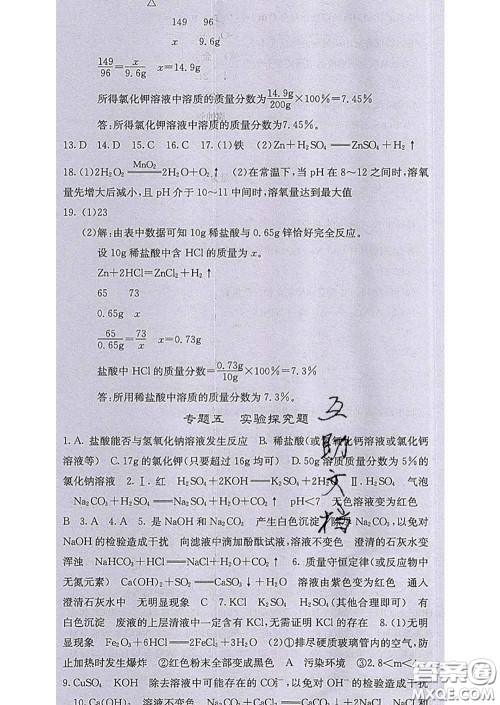 △
149 96
x 9.6g
149/96=x/9.6g x=14.9g
所得氯化钾溶液中溶质的质量分数为14.9g/200g×100%=7.45%
答:所得氯化钾溶液中溶质的质量分数为7.45%。
13.D 14.D 15.C 16.C 17.(1)铁 (2)Zn+H₂SO₄══ZnSO₄+H₂↑
18.(1)2H₂O₂ MnO₂══2H₂O+O₂↑ (2)在常温下,当 pH 在 8~12 之间时,溶氧
量先增大后减小,且 pH 介于 10~11 中间时,溶氧量达到最大值
19.(1)23
(2)解:由表中数据可知 10g 稀盐酸与 0.65g 锌恰好完全反应。
设 10g 稀盐酸中含 HCl 的质量为 x。
Zn+2HCl══ZnCl₂+H₂↑
65 73
0.65g x
65/0.65g=73/x x=0.73g
盐酸中 HCl 的质量分数为0.73g/10g×100%=7.3%
答:所用稀盐酸中溶质的质量分数为 7.3%。
专题五 实验探究题
1.A.盐酸能否与氢氧化钠溶液发生反应 B.稀盐酸(或 化钙溶液或氯化钙
溶液等) C.17g 的氯化钾(只要超过 16g 均可) D.50g 溶质质量分数为 5%的
氯化钠溶液 2.Ⅰ.红 H₂SO₄+2KOH══K₂SO₄+ Ⅱ.H₂SO₄ 气泡
Na₂CO₃+H₂SO₄══Na₂SO₄+CO₂↑ pH<7 无色溶液变为红色
B 3.A 4.A 5.是 NaOH 和 Na₂CO₃ 产生白色沉淀 Na₂CO₃,以免对
NaOH 的检验造成干扰 向滤液中滴加酚酞试液,溶液不变色 澄清的石灰水变
浑浊 NaHCO₃+HCl══NaCl+H₂O+CO₂↑ 6.质量守恒定律(或反应物中
无氮元素) Ca(OH)₂+SO₂══CaSO₃↓+H₂O 溶液由紫色变为红色 通入
澄清石灰水中 无明显现象 C 7.KCl K₂SO₄ H₂SO₄(其他合理即可) 有
白色沉淀 废液的上层清液一定含有 KCl,无需证明 KCl 的存在 8.(1)无明
显现象 Fe₂O₃+6HCl══2FeCl₃+3H₂O (2)①排尽硬质玻璃管内的空气,防
止加热时发生爆炸 ②红色粉末全部变成黑色 A 污染环境 ③2.8<m<
9.CuSO₄ KOH 除去溶液中可能存在的 CO₃²⁻,以免对 OH⁻ 的检验造成干扰
10.Ca(OH)₂ 溶液不变色 Na₂CO₃+CaCl₂══CaCO₃↓+2NaCl
互助文档
答案圈
MXQE.COM